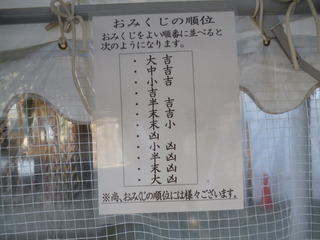 おみくじの順位
おみくじをよい順番に並べると
次のようになります。
・大 吉
・中 吉
・小 吉
・吉
・半 吉
・末 吉
・末 小
・凶
・小 凶
・半 凶
・末 凶
・大 凶
※尚、おみくじの順位には様々ございます。